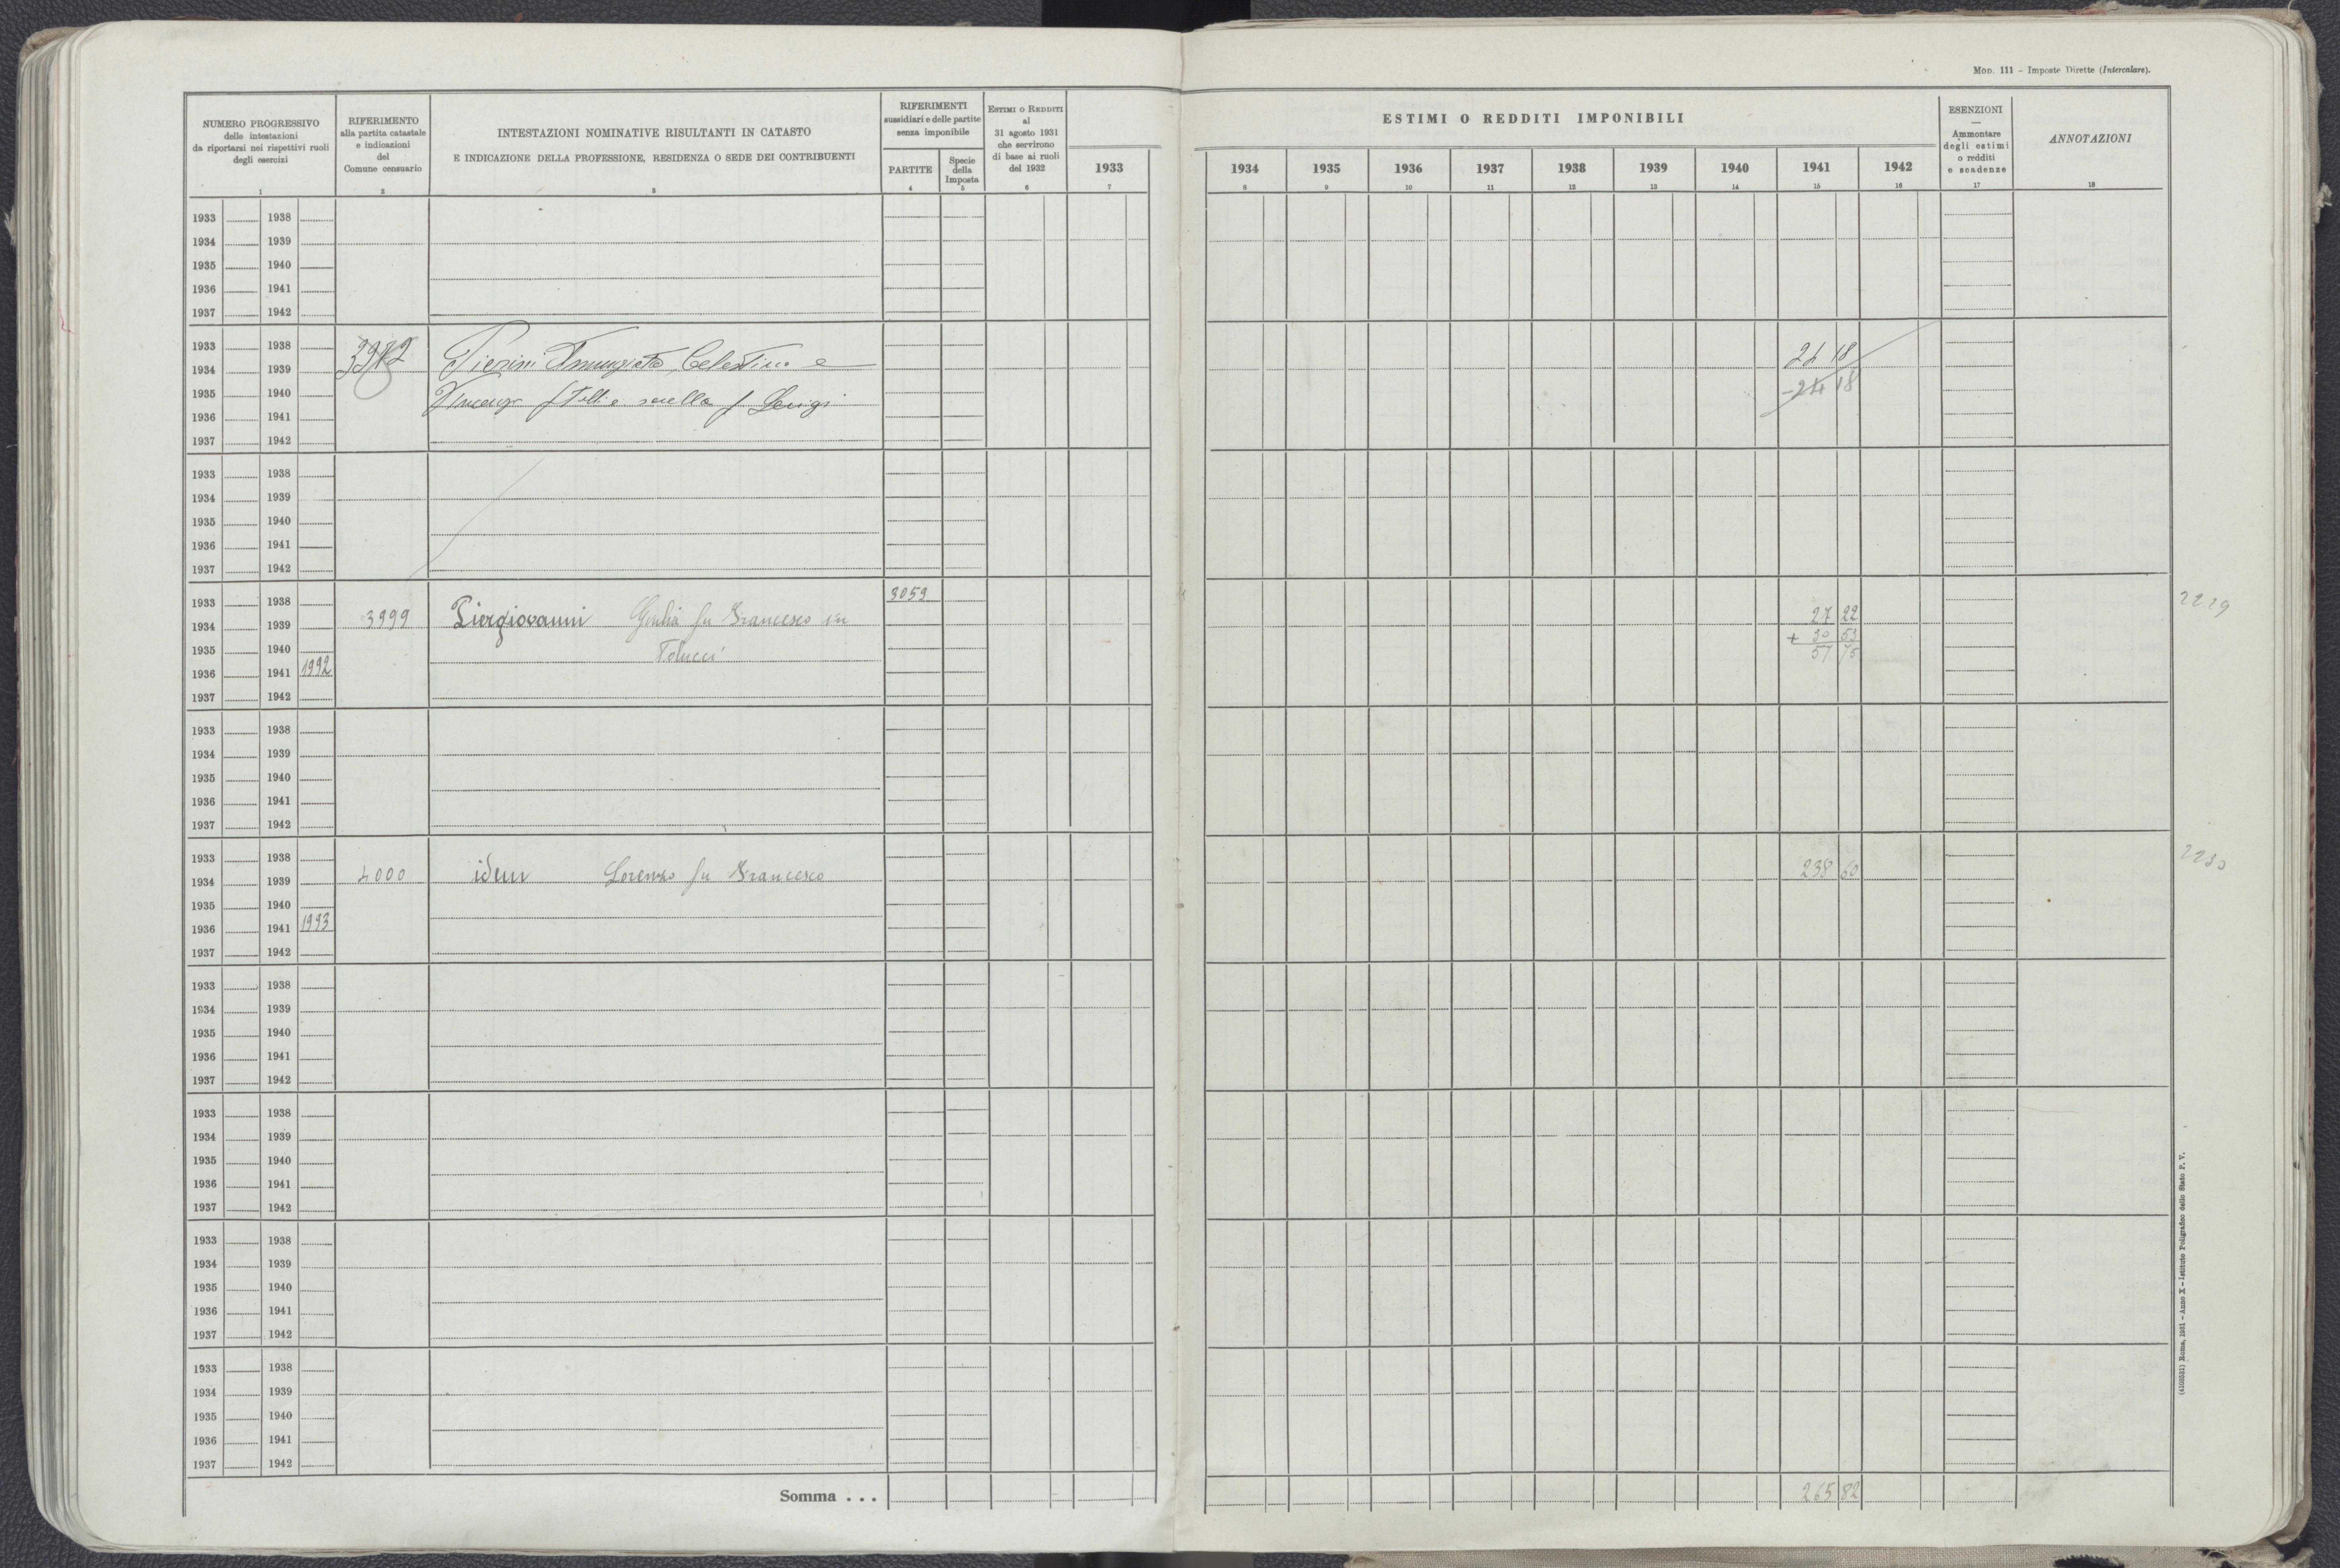 Mod. 111 – Imposte Dirette (Intercalare).
NUMERO PROGRESSIVO
delle intestazioni
da riportarsi nei rispettivi ruoli
degli esercizi
1
RIFERIMENTO
alla partita catastale
e indicazioni
del
Comune censuario
2
INTESTAZIONI NOMINATIVE RISULTANTI IN CATASTO
E INDICAZIONE DELLA PROFESSIONE, RESIDENZA O SEDE DEI CONTRIBUENTI
3
RIFERIMENTI
sussidiari e delle partite
senza imponibile
PARTITE
4
Specie
della
Imposta
5
Estimi o Redditi
al
31 agosto 1931
che servirono
di base ai ruoli
del 1932
6
1933
7
ESTIMI O REDDITI IMPONIBILI
1934 1935 1936 1937 1938 1939 1940 1941 1942
8 9 10 11 12 13 14 15 16
ESENZIONI
—
Ammontare
degli estimi
o redditi
e scadenze
17
ANNOTAZIONI
18
1933 1938
1934 1939
1935 1940
1936 1941
1937 1942
1933 1938
1934 1939 Pierini Celestino e 24 18
1935 1940 Vincenzo f.lli e sorella f Luigi - 24 18
1936 1941
1937 1942
1933 1938
1934 1939
1935 1940
1936 1941
1937 1942
1933 1938 3053 2229
1934 1939 3999 Piergiovanni Giulia fu Francesco in 27 22
1935 1940 Tolucci + 30 53
1936 1941 1992 57 75
1937 1942
1933 1938
1934 1939
1935 1940
1936 1941
1937 1942
1933 1938 2230
1934 1939 4000 idem Lorenzo fu Francesco 238 60
1935 1940
1936 1941 1993
1937 1942
1933 1938
1934 1939
1935 1940
1936 1941
1937 1942
1933 1938
1934 1939
1935 1940
1936 1941
1937 1942
1933 1938
1934 1939
1935 1940
1936 1941
1937 1942
1933 1938
1934 1939
1935 1940
1936 1941
1937 1942
Somma . . . 265 82
(4103531) Roma, 1931 – Anno X – Istituto Poligrafico dello Stato P. V.